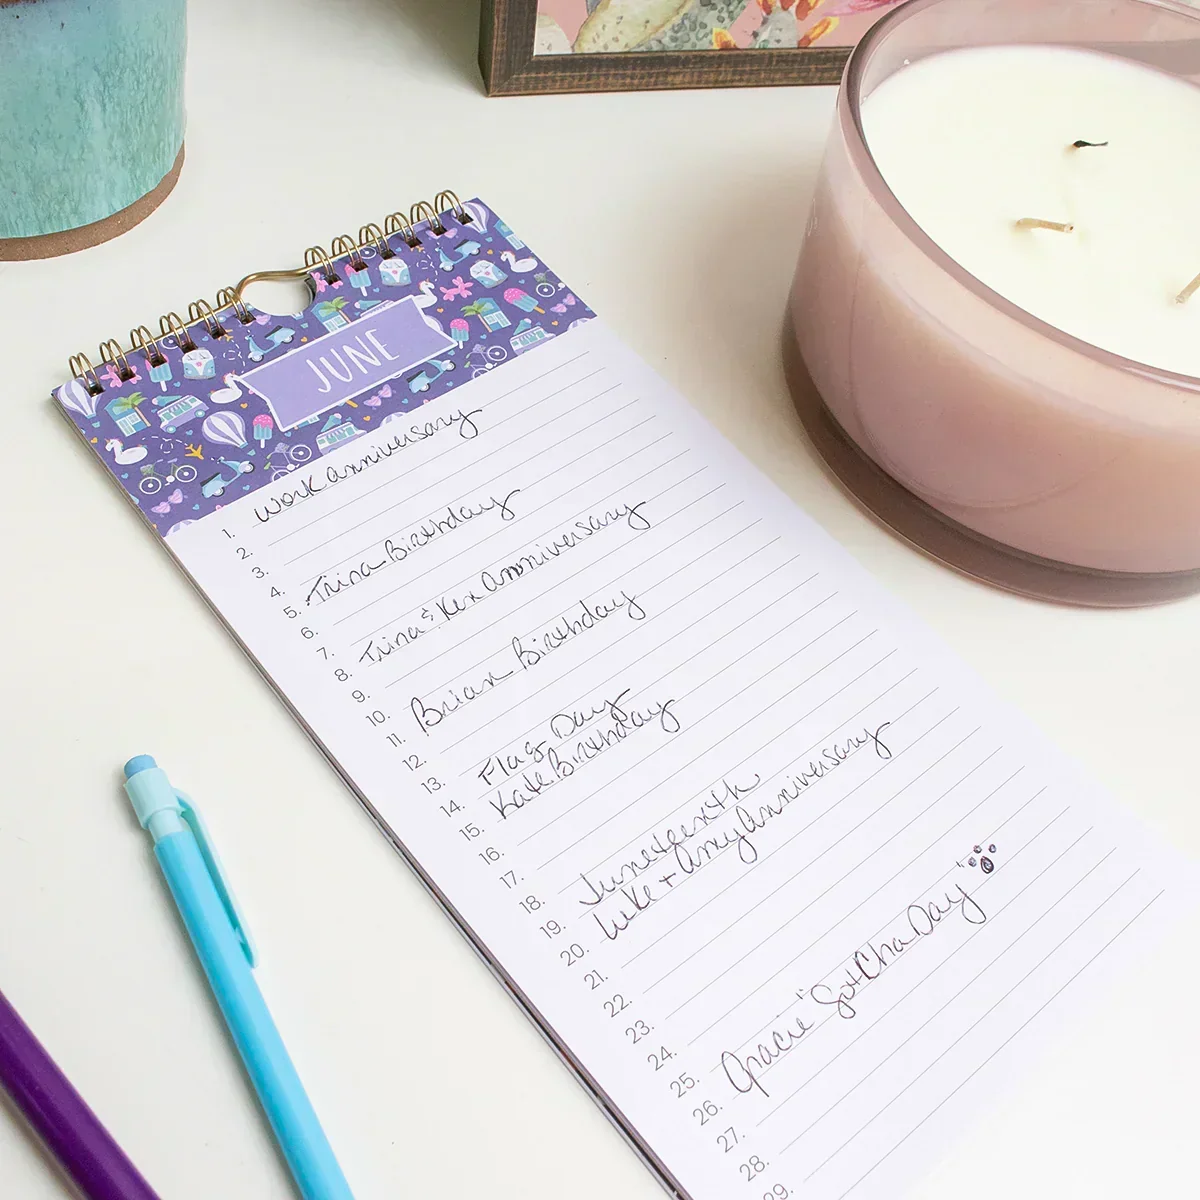 JUNE
1. Work anniversary
2.
3.
4.
5. Trina Birthday
6.
7.
8. Trina & Ken Anniversary
9.
10.
11. Brian Birthday
12.
13.
14. Flag Day
15. Kate Birthday
16.
17.
18.
19. Juneteenth
20. Luke + Amy Anniversary
21.
22.
23.
24.
25.
26. Gracie "Gotcha Day"
27.
28.
29.